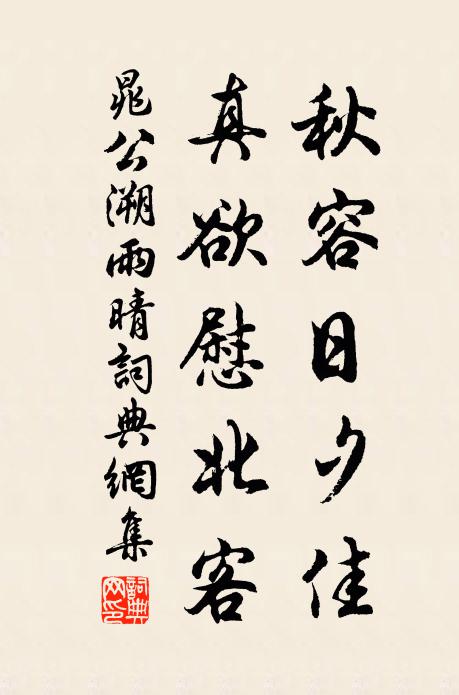 秋容日夕佳
真欲慰北客
晁公溯雨晴詞典網集
詞典網印